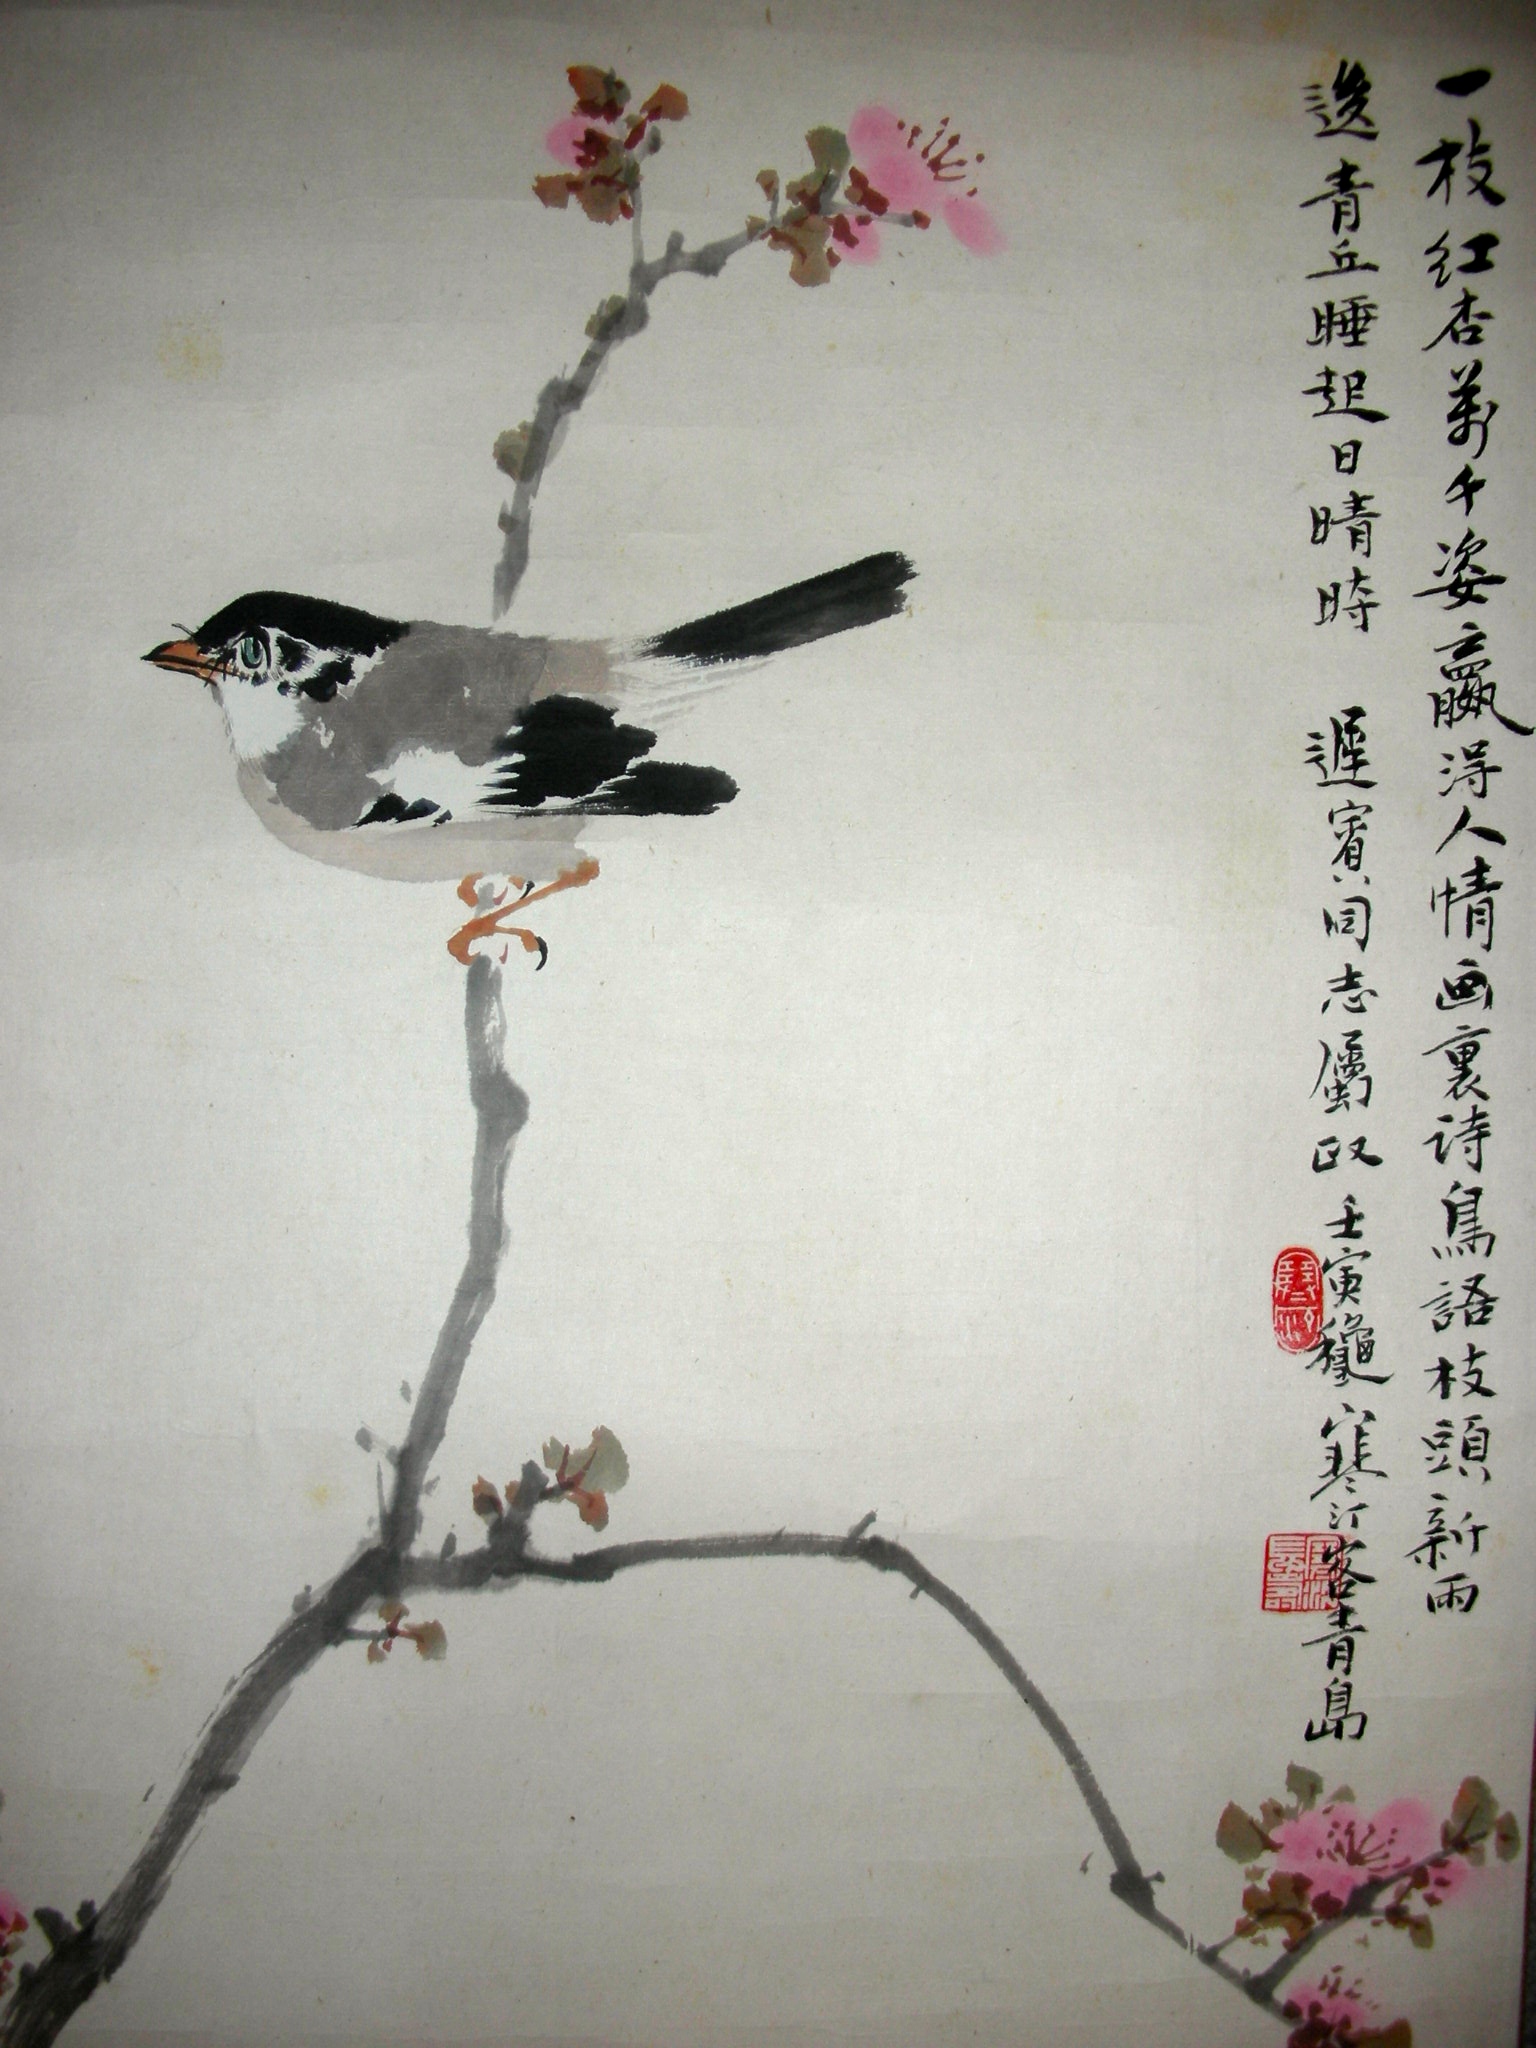 一枝红杏萬千姿贏得人情画裏诗鳥語枝頭新雨
後青丘睡起日晴時 遲賓同志屬政 壬寅龝寒汀客青島